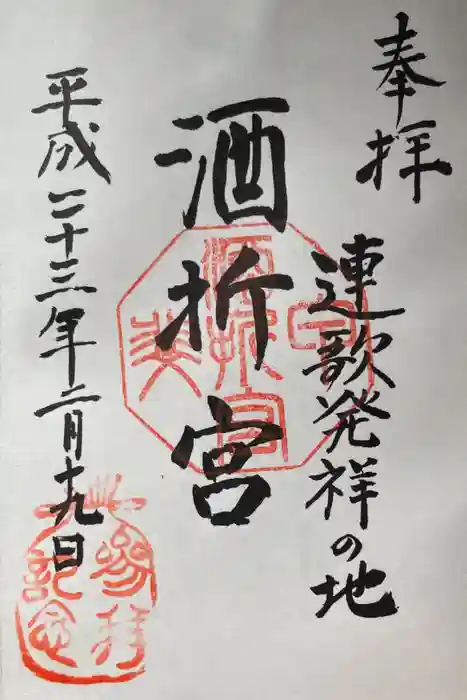 奉拝
連歌発祥の地
酒折宮
平成二十三年二月十九日
酒折宮
参拝
記念